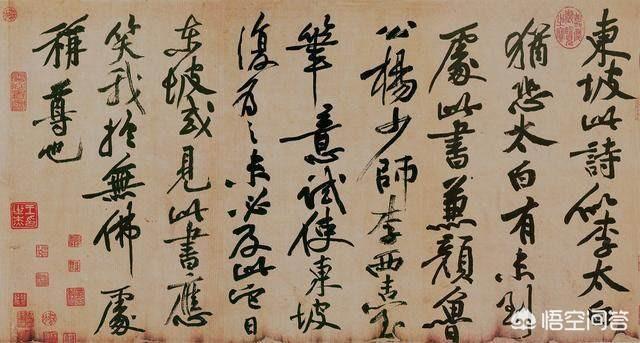 東坡此詩似李太白
猶恐太白有未到
處此書兼顏魯
公楊少師李西臺
筆意試使東坡
復為之未必及此它日
東坡或見此書應
笑我於無佛處
稱尊也
悟空问答